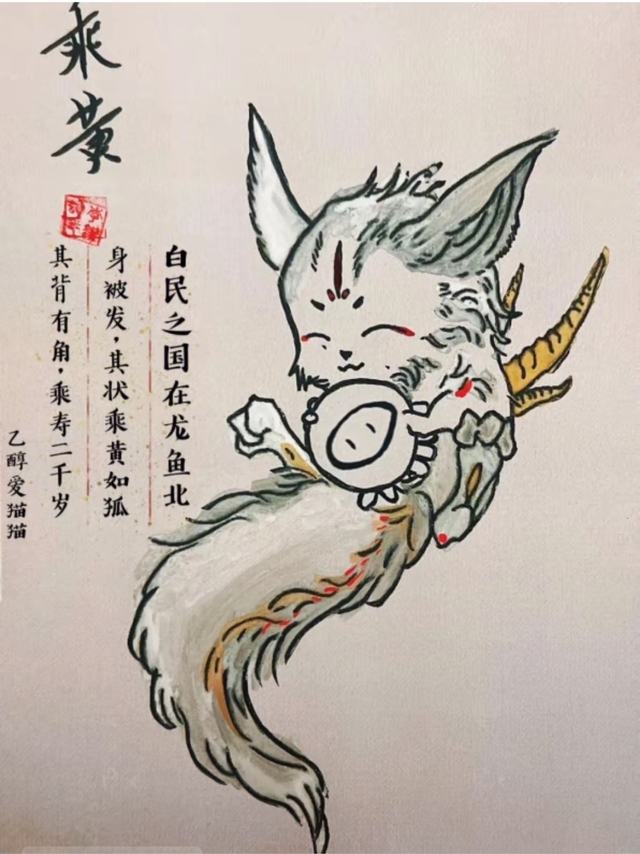 乘黄
白民之国在龙鱼北
身被发，其状乘黄如狐
其背有角，乘寿二千岁
乙醇爱猫猫